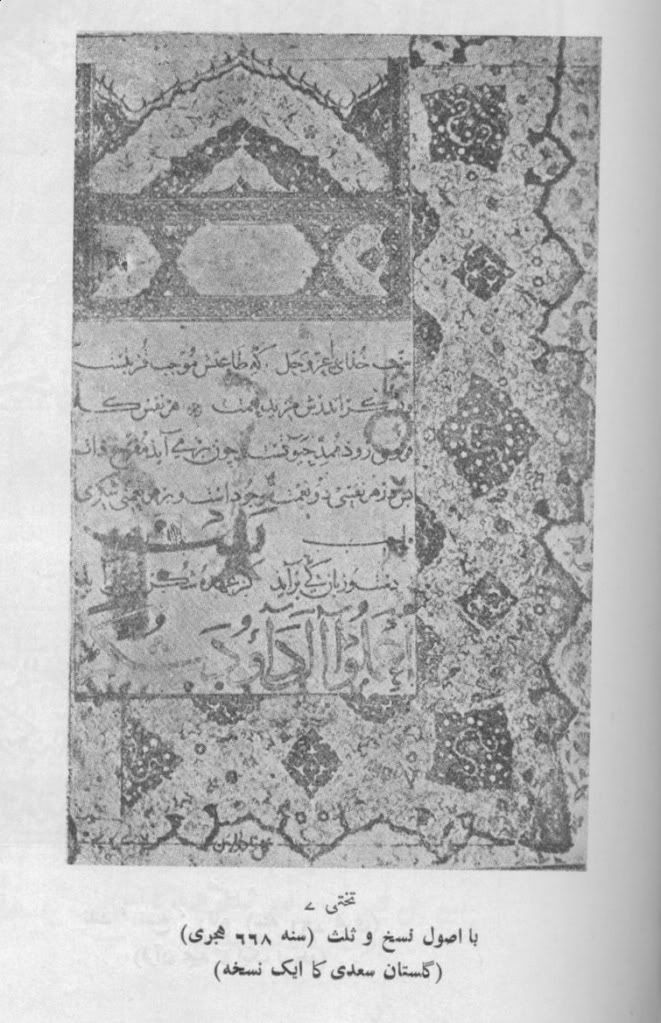 منت خدای را عز و جل که طاعتش موجب قربتست
اندرش مزید نعمت هر نفس که
رود ممد حیوتست چون بر می آید مفرح ذات
در هر نفسی دو نعمت موجود است و بر هر نعمتی شکری
واجب بیت
دست و زبان که برآید کز عهده شکر
اعملوا آل داؤد
تختی ۷
با اصول نسخ و ثلث (سنه ۶۶۸ هجری)
(گلستان سعدی کا ایک نسخه)